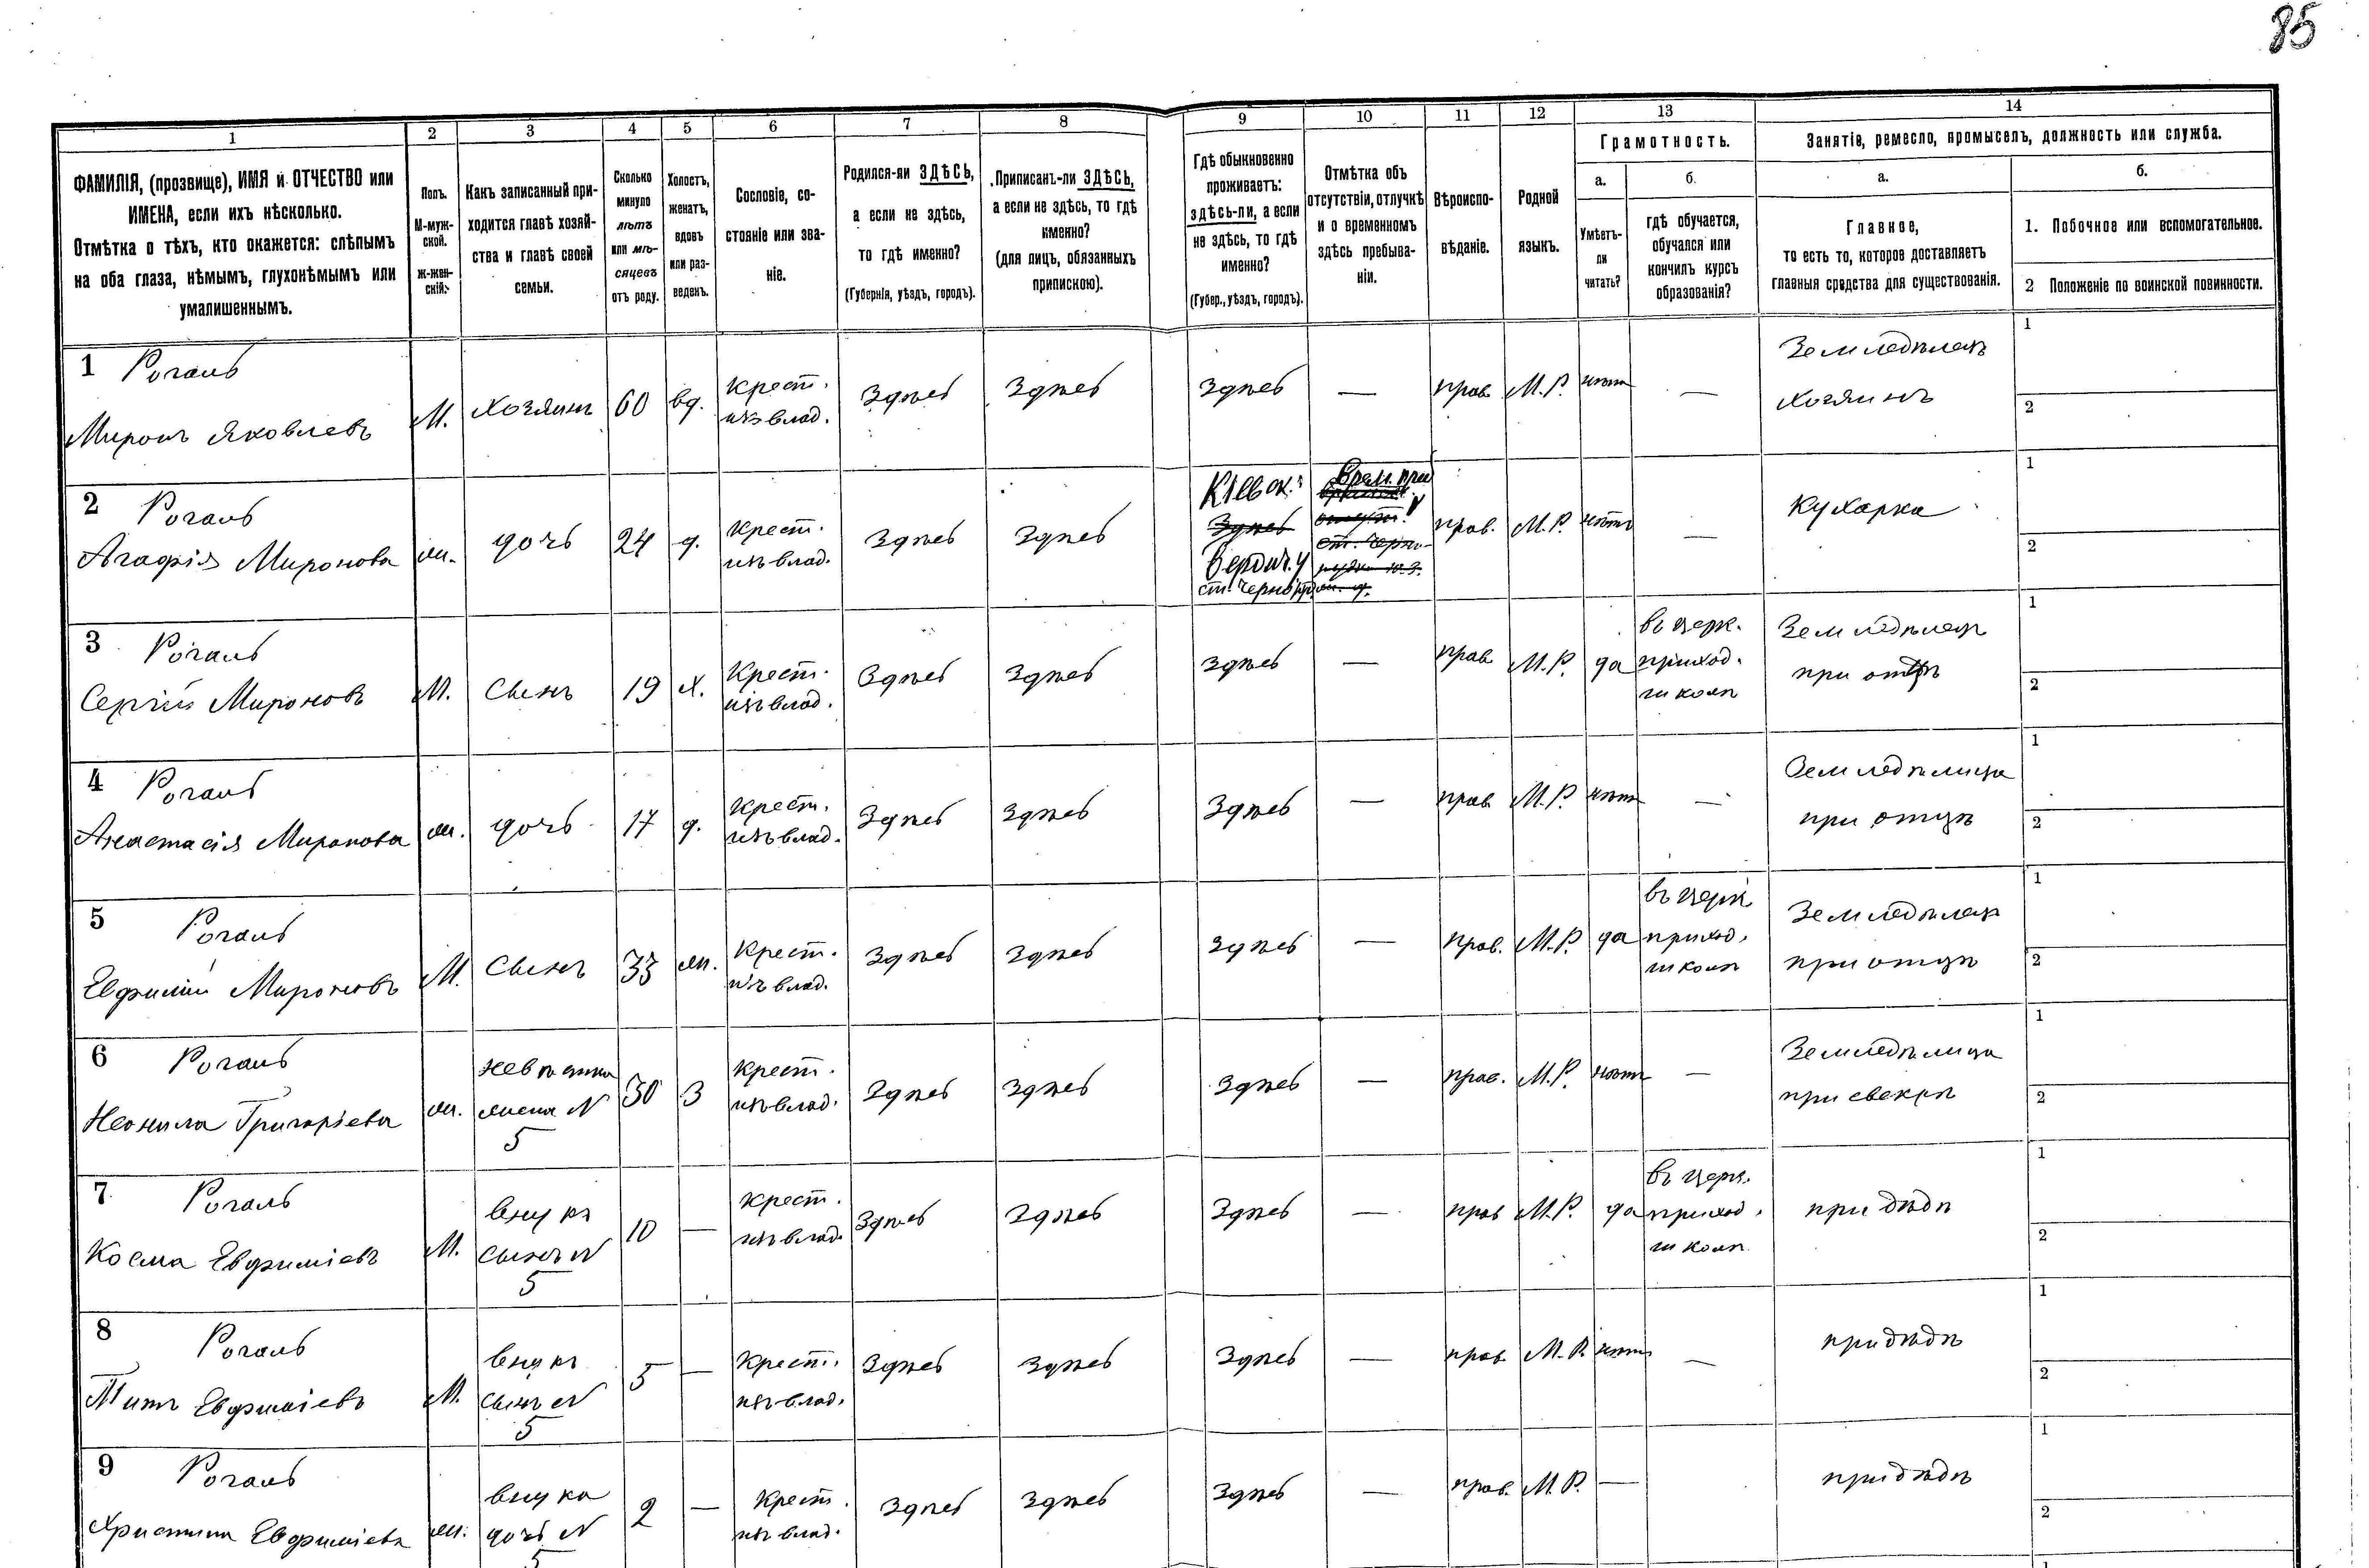 85
1 2 3 4 5 6 7 8 9 10 11 12 13 14
ФАМИЛІЯ, (прозвище), ИМЯ и ОТЧЕСТВО или
ИМЕНА, если ихъ нѣсколько.
Отмѣтка о тѣхъ, кто окажется: слѣпымъ
на оба глаза, нѣмымъ, глухонѣмымъ или
умалишеннымъ.
Полъ.
М-муж-
ской.
ж-жен-
скій.
Какъ записанный при-
ходится главѣ хозяй-
ства и главѣ своей
семьи.
Сколько
минуло
лѣтъ
или мѣ-
сяцевъ
отъ роду.
Холостъ,
женатъ,
вдовъ
или раз-
веденъ.
Сословіе, со-
стояніе или зва-
ніе.
Родился-ли ЗДѢСЬ,
а если не здѣсь,
то гдѣ именно?
(Губернія, уѣздъ, городъ).
Приписанъ-ли ЗДѢСЬ,
а если не здѣсь, то гдѣ
именно?
(для лицъ, обязанныхъ
припискою).
Гдѣ обыкновенно
проживаетъ:
здѣсь-ли, а если
не здѣсь, то гдѣ
именно?
(Губер., уѣздъ, городъ).
Отмѣтка объ
отсутствіи, отлучкѣ
и о временномъ
здѣсь пребыва-
ніи.
Вѣроиспо-
вѣданіе.
Родной
языкъ.
Грамотность.
а.
Умѣетъ-
ли
читать?
б.
гдѣ обучается,
обучался или
кончилъ курсъ
образованія?
Занятіе, ремесло, промыселъ, должность или служба.
а.
Главное,
то есть то, которое доставляетъ
главныя средства для существованія.
б.
1. Побочное или вспомогательное.
2 Положеніе по воинской повинности.
1 Рогаль
Миронъ Яковлевъ
М.
Хозяинъ
60
вд.
Крест.
изъ влад.
Здѣсь
Здѣсь
Здѣсь
—
прав.
М.Р.
нѣтъ
—
Земледѣлец
Хозяинъ
1
2
2 Рогаль
Агафія Миронова
ж.
дочь
24
д.
Крест.
изъ влад.
Здѣсь
Здѣсь
Кіевск.
Здѣсь
Бердич. у
ст. Черноруд
Врем. преб
прав.
М.Р.
нѣтъ
—
Кухарка
1
2
3 Рогаль
Сергій Мироновъ
М.
Сынъ
19
х.
Крест.
изъ влад.
Здѣсь
Здѣсь
Здѣсь
—
прав
М.Р.
да
въ церк.
приход.
школѣ
Земледѣлец
при отцѣ
1
2
4 Рогаль
Анастасія Миронова
ж.
дочь
17
д.
Крест.
изъ влад.
Здѣсь
Здѣсь
Здѣсь
—
прав
М.Р.
нѣтъ
—
Земледѣлица
при отцѣ
1
2
5 Рогаль
Евфимій Мироновъ
М.
Сынъ
33
ж.
Крест.
изъ влад.
Здѣсь
Здѣсь
Здѣсь
—
прав.
М.Р.
да
въ церк
приход.
школѣ
Земледѣлец
при отцѣ
1
2
6 Рогаль
Неонила Григорiева
ж.
невѣстка
жена N
5
30
З
Крест.
изъ влад.
Здѣсь
Здѣсь
Здѣсь
—
прав.
М.Р.
нѣтъ
—
Земледѣлица
при свекрѣ
1
2
7 Рогаль
Косма Евфиміевъ
М.
внукъ
сынъ N
5
10
—
Крест.
изъ влад.
Здѣсь
Здѣсь
Здѣсь
—
прав
М.Р.
да
въ церк.
приход.
школѣ
при дѣдѣ
1
2
8 Рогаль
Титъ Евфиміевъ
М.
внукъ
сынъ N
5
5
—
Крест.
изъ влад.
Здѣсь
Здѣсь
Здѣсь
—
прав.
М.Р.
нѣтъ
—
при дѣдѣ
1
2
9 Рогаль
Христина Евфиміева
ж.
внука
дочь N
5
2
—
Крест.
изъ влад.
Здѣсь
Здѣсь
Здѣсь
—
прав.
М.Р.
—
при дѣдѣ
1
2
1